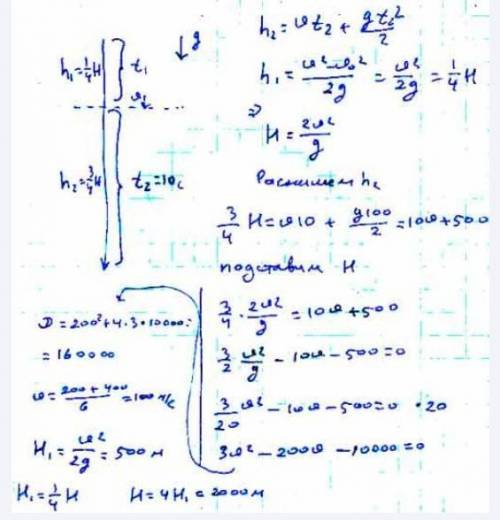 h₁=¼H
t₁
↓g
v₁
h₂=¾H
t₂=10с
h₂ = vt₂ + gt₂²/2
h₁ = (v²-v₀²)/2g = v²/2g = ¼H
⇒ H = 2v²/g
Распишем h₂
3/4 H = v10 + g100/2 = 10v+500
подставим H
3/4 · 2v²/g = 10v+500
3/2 v²/g - 10v - 500 = 0
3/20 v² - 10v - 500 = 0 ·20
3v² - 200v - 10000 = 0
D = 200²+4·3·10000=
= 160000
v = (200+400)/6 = 100 м/с
H₁ = v²/2g = 500 м
H₁ = ¼H H = 4H₁ = 2000 м